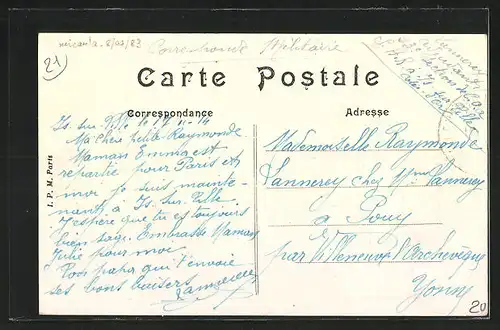 21
Correspondance Militaire
Carte Postale
Correspondance
Adresse
I. P. M. Paris
Is. sur. Tille
Ma chère petite Raymonde
Maman Emma est
repartie pour Paris et
moi je suis mainte-
nant à Is. sur. Tille
J'espère que tu es toujours
bien sage. Embrasse Maman
Julie pour moi
Ton papa qui t'envoie
ses bons baisers
Mademoiselle Raymonde
Lannerey chez Mme Lannerey
à Pouy
par Villeneuve l'Archevêque
Yonne
20